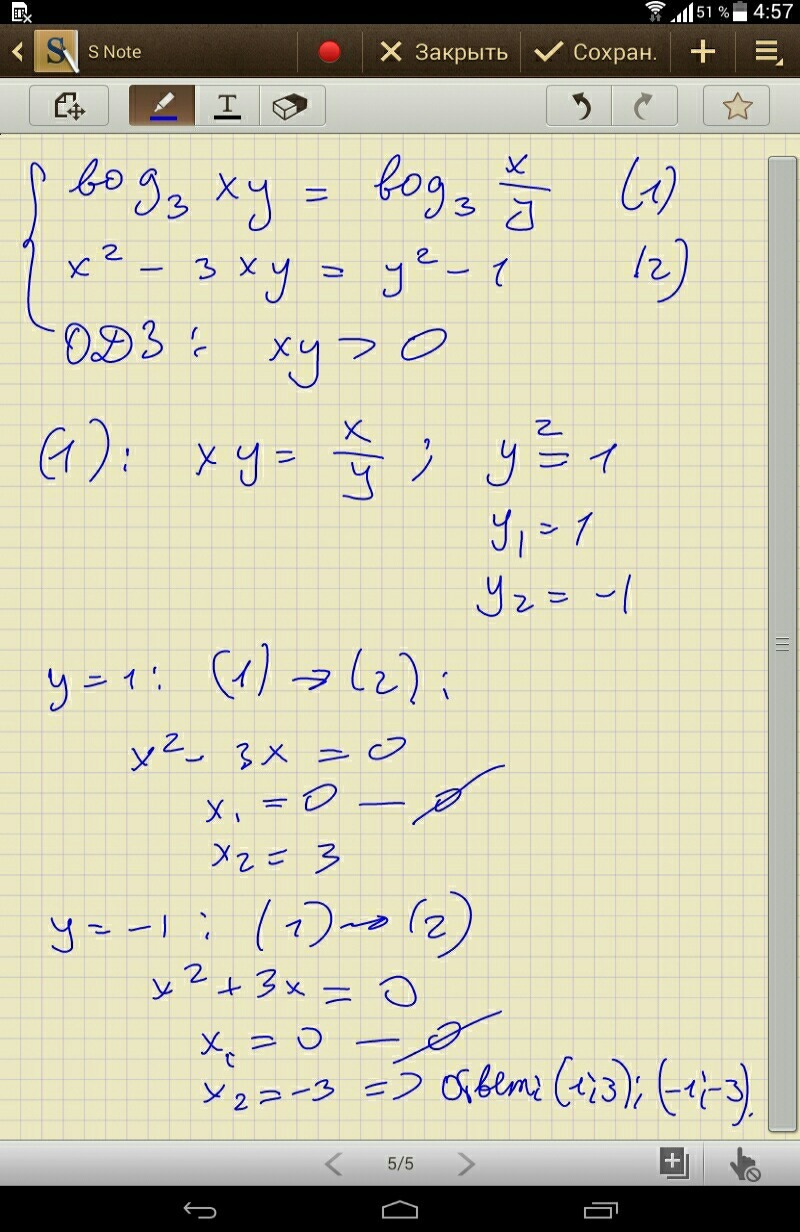 51 % 4:57
S Note Закрыть Сохран.
T
log₃ xy = log₃ x/y (1)
x² - 3xy = y² - 1 (2)
ОДЗ: xy > 0
(1): xy = x/y ; y² = 1
y₁ = 1
y₂ = -1
y = 1: (1) → (2):
x² - 3x = 0
x₁ = 0 — ∅
x₂ = 3
y = -1: (1) → (2)
x² + 3x = 0
x₁ = 0 — ∅
x₂ = -3 => Ответ: (1;3); (-1;-3).
5/5